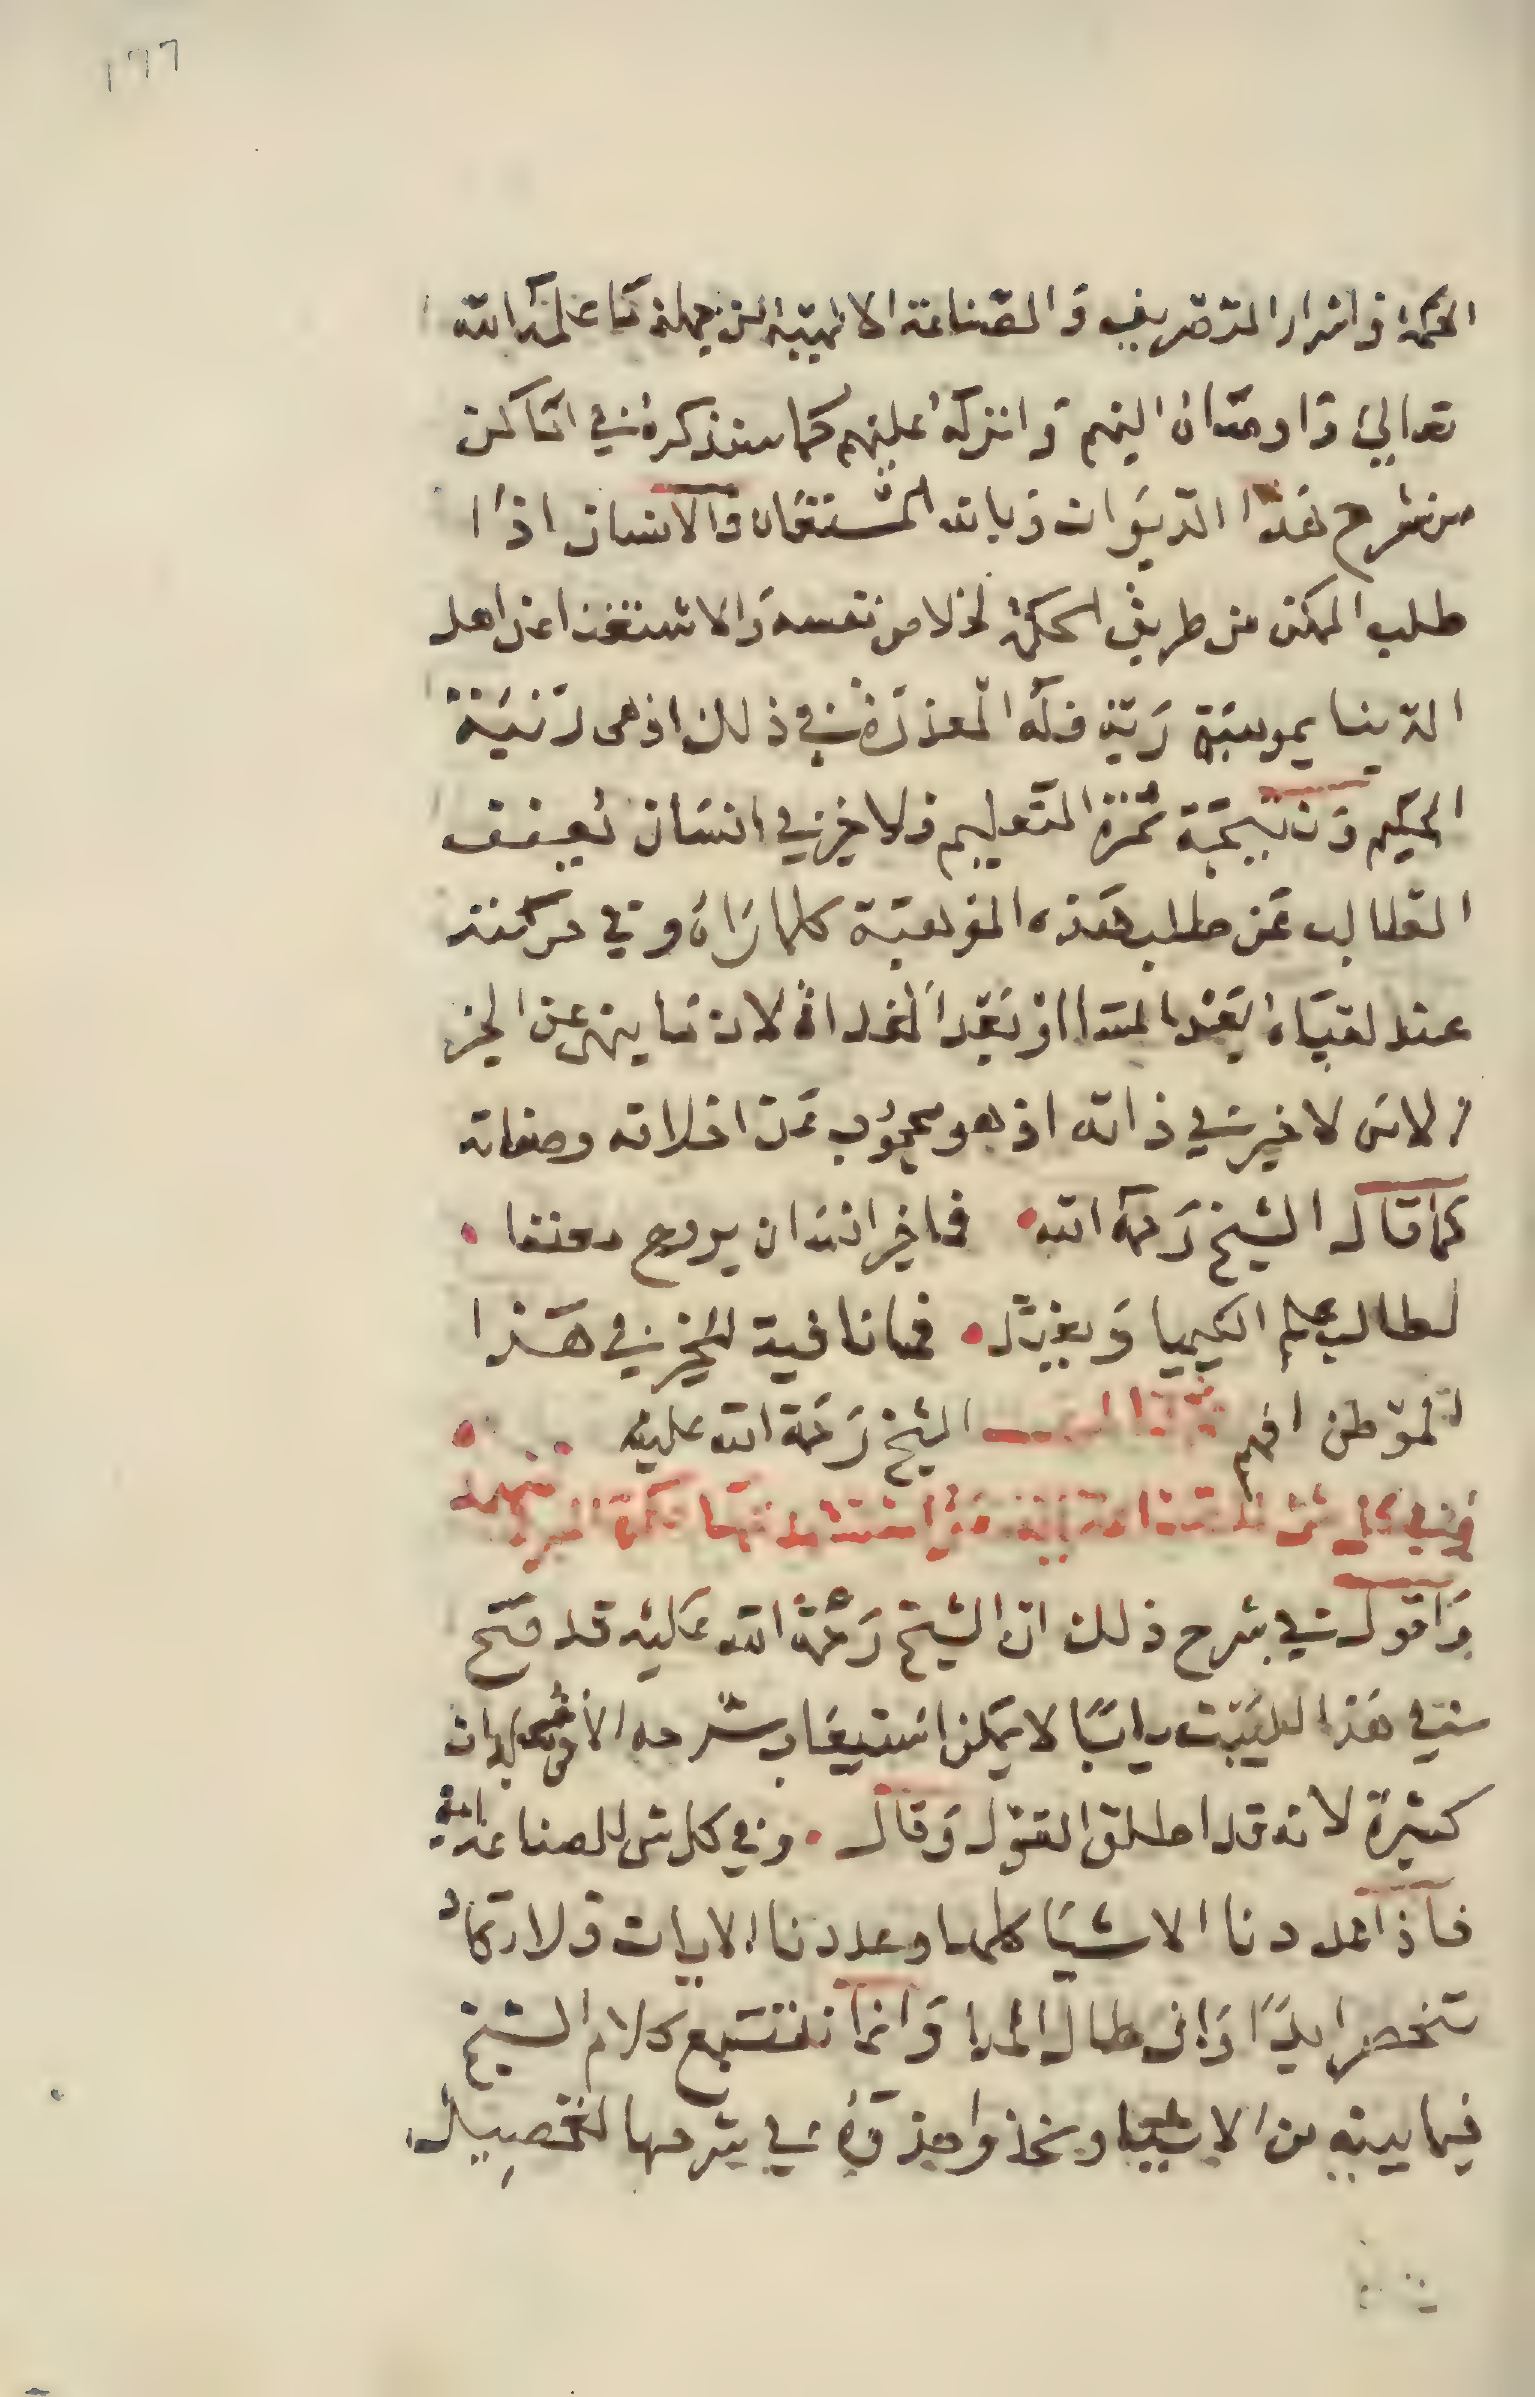 ١٦٦
الحكمة واسرار التصريف والصناعة الالهية من جملة ما علمه الله
تعالى واوحاه اليهم وانزله عليهم كما سنذكره في اماكن
من شرح هذا الديوان وبالله المستعان والانسان اذا
طلب الممكن من طريق الحكمة لخلاص نفسه والاستغنا عن اهل
الدنيا بموهبة ربه فله المعذرة في ذلك اذ هي
الحكيم ونتيجة ثمرة التعليم ولا خير في انسان يعنف
الطالب عن طلب هذه الموهبة كلما رآه وفي حركته
عند لقياه لان ما ينهى عن الخير
الا من لا خير في ذاته اذ هو محجوب عن اخلاقه وصفاته
كما قال الشيخ رحمه الله • فما خير انسان يروح معنفا •
لطالب علم الكيميا ويعذل • فما نافية للخير في هذا
الموطن افهم الشيخ رحمة الله عليه
وفي كل شي للصناعة اية
واقول في شرح ذلك ان الشيخ رحمة الله عليه قد فتح
في هذا البيت بابا لا يمكن استيعاب شرحه الا في مجلدات
كثيرة لانه قد اطلق القول وقال • وفي كل شي للصناعة اية
فاذا عددنا الاشيا كلها وعددنا الايات فلا تكاد
تنحصر ابدا وان طال المدا وانما نتتبع كلام الشيخ
فيما بينه من الاشيا ونحذوا حذوه في شرحها لتحصيل